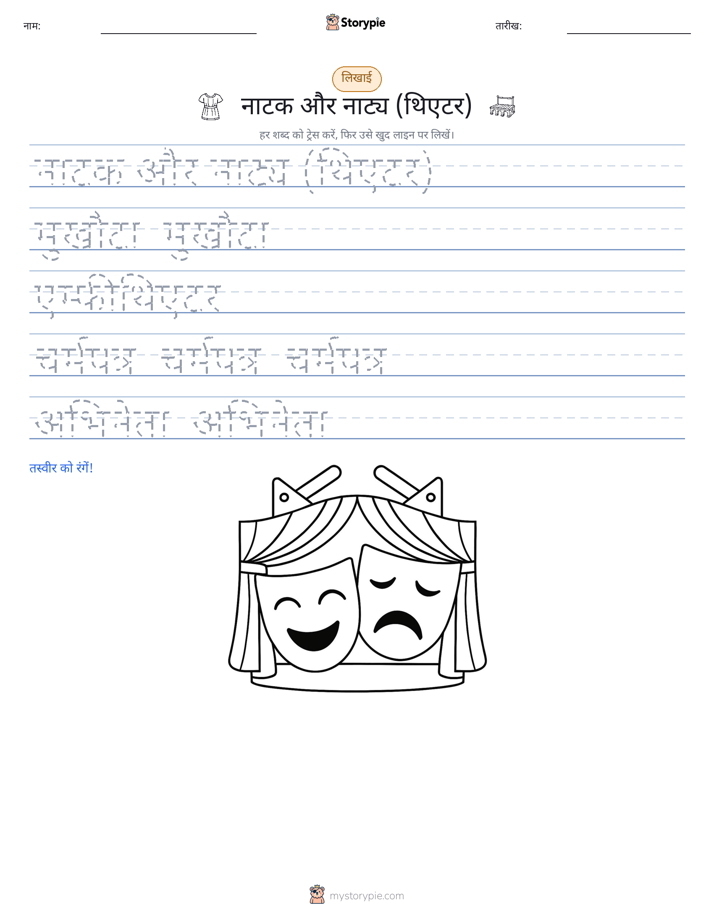 नाम: Storypie तारीख:
लिखाई
नाटक और नाट्य (थिएटर)
हर शब्द को ट्रेस करें, फिर उसे खुद लाइन पर लिखें।
नाटक और नाट्य (थिएटर)
मुखौटा मुखौटा
एम्फीथिएटर
चर्मपत्र चर्मपत्र चर्मपत्र
अभिनेता अभिनेता
तस्वीर को रंगें!
mystorypie.com